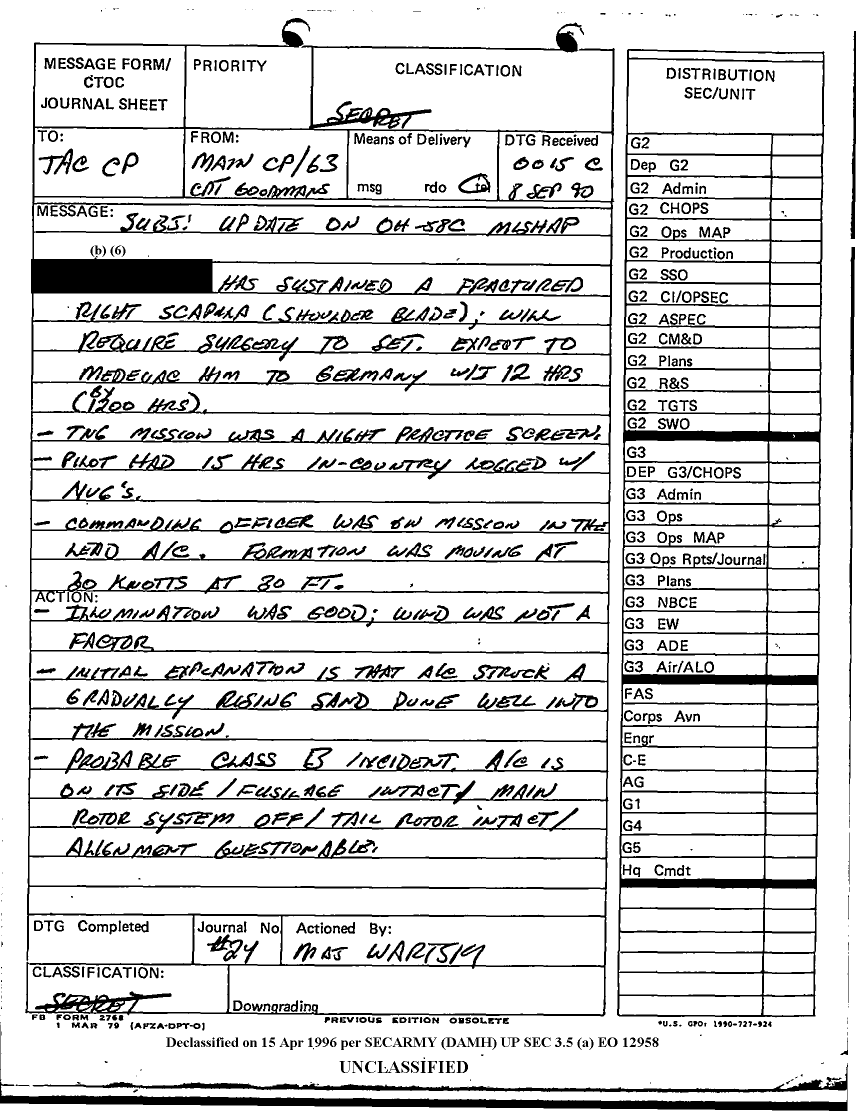 MESSAGE FORM/
CTOC
JOURNAL SHEET
PRIORITY
CLASSIFICATION
SECRET
TO:
TAC CP
FROM:
MAIN CP/63
CPT GOODMANS
Means of Delivery
msg rdo tel
DTG Received
0015 C
8 SEP 90
MESSAGE: SUBJ: UPDATE ON OH-58C MISHAP
(b) (6)
HAS SUSTAINED A FRACTURED
RIGHT SCAPULA (SHOULDER BLADE); WILL
REQUIRE SURGERY TO SET. EXPECT TO
MEDEVAC HIM TO GERMANY W/I 12 HRS
(BY 1200 HRS).
- TNG MISSION WAS A NIGHT PRACTICE SCREEN.
- PILOT HAD 15 HRS IN-COUNTRY LOGGED W/
NVG'S.
- COMMANDING OFFICER WAS ON MISSION IN THE
LEAD A/C. FORMATION WAS MOVING AT
30 KNOTTS AT 30 FT.
ACTION:
- ILLUMINATION WAS GOOD; WIND WAS NOT A
FACTOR
- INITIAL EXPLANATION IS THAT A/C STRUCK A
GRADUALLY RISING SAND DUNE WELL INTO
THE MISSION.
- PROBABLE CLASS B INCIDENT. A/C IS
ON ITS SIDE/FUSILAGE INTACT/ MAIN
ROTOR SYSTEM OFF/TAIL ROTOR INTACT/
ALIGNMENT QUESTIONABLE.
DTG Completed
Journal No.
#24
Actioned By:
MAJ
CLASSIFICATION:
SECRET
Downgrading
FB FORM 2768
1 MAR 79 (AFZA-DPT-O)
PREVIOUS EDITION OBSOLETE
DISTRIBUTION
SEC/UNIT
G2
Dep G2
G2 Admin
G2 CHOPS
G2 Ops MAP
G2 Production
G2 SSO
G2 CI/OPSEC
G2 ASPEC
G2 CM&D
G2 Plans
G2 R&S
G2 TGTS
G2 SWO
G3
DEP G3/CHOPS
G3 Admin
G3 Ops
G3 Ops MAP
G3 Ops Rpts/Journal
G3 Plans
G3 NBCE
G3 EW
G3 ADE
G3 Air/ALO
FAS
Corps Avn
Engr
C-E
AG
G1
G4
G5
Hq Cmdt
*U.S. GPO: 1990-727-924
Declassified on 15 Apr 1996 per SECARMY (DAMH) UP SEC 3.5 (a) EO 12958
UNCLASSIFIED